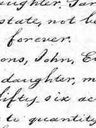 daughter, Sar
state, not le
forever.
ons, John, E
daughter, m
fifty six ac
to quantity